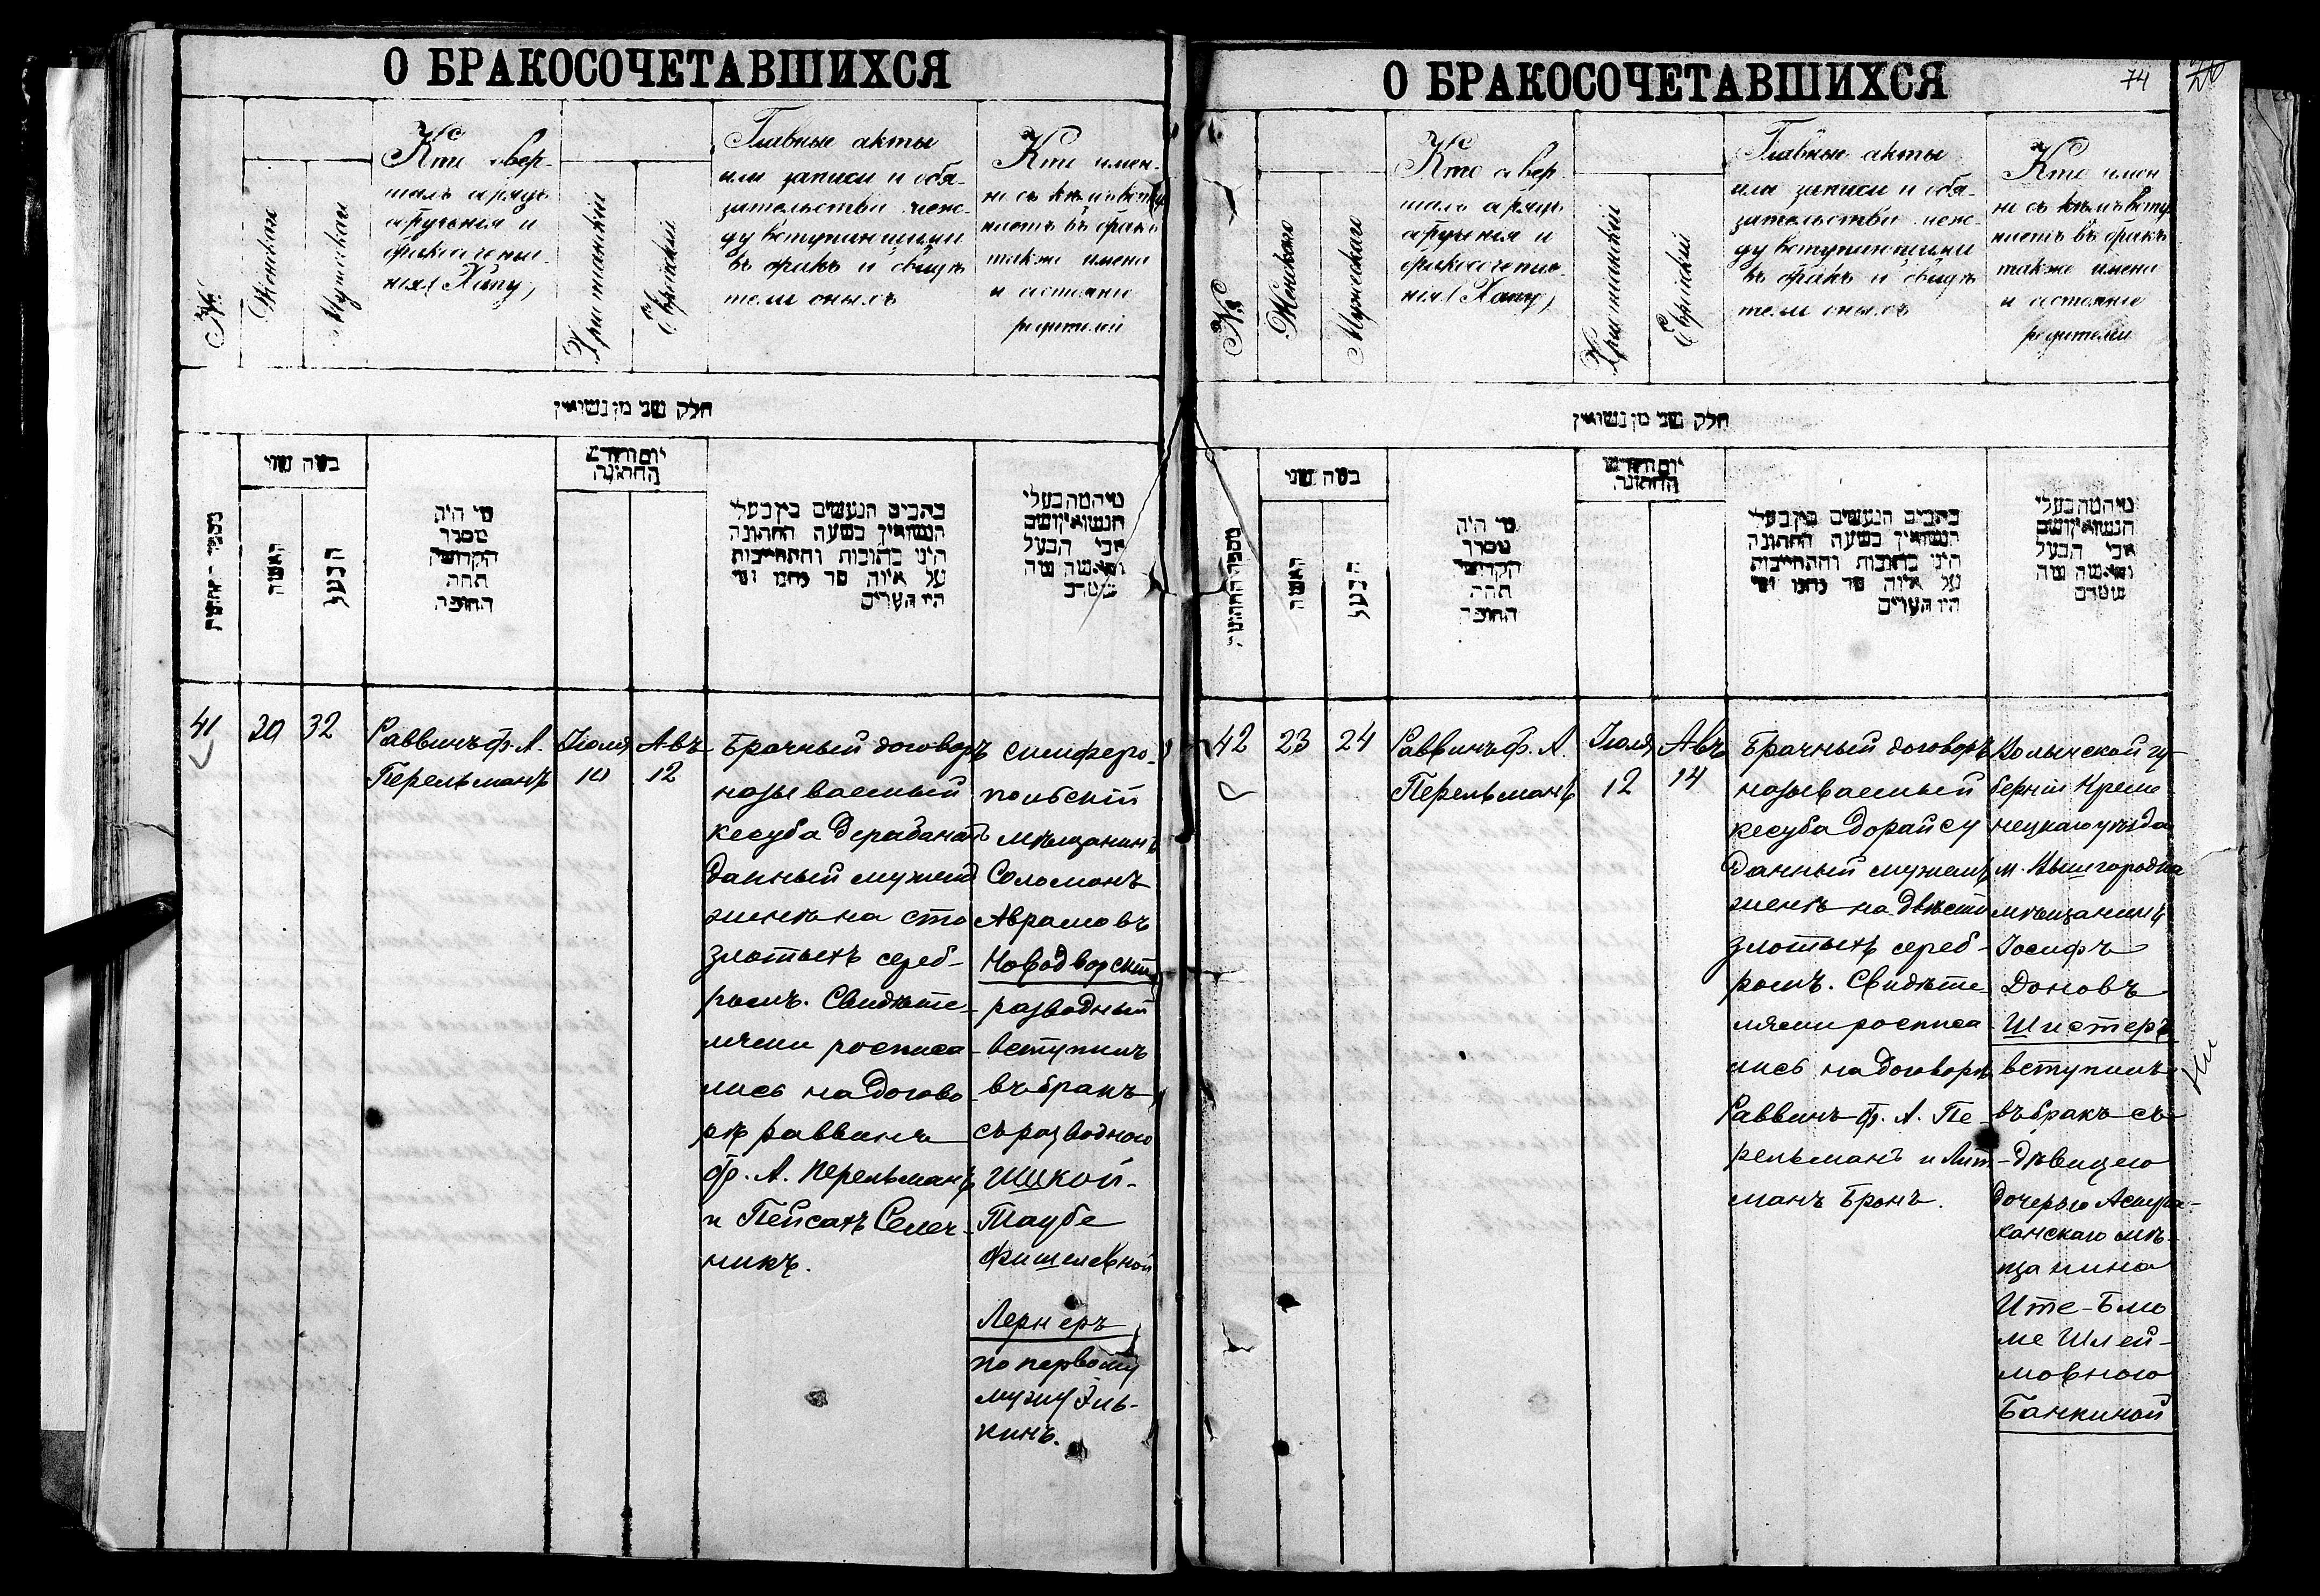 О БРАКОСОЧЕТАВШИХСЯ
№
Женскаго
Мужескаго
Кто совер-
шалъ обрядъ
обрученія и
бракосочета-
нія (Хипу)
Христіанскій
Еврейскій
Главные акты
или записи и обя-
зательства меж-
ду вступающими
въ бракъ и свидѣ
тели оныхъ
Кто имен-
но съ кѣмъ всту
паетъ въ бракъ
также имена
и состояніе
родителей
חלק שני מן נשואין
כמה שני
האשה
הבעל
מי היה
מסדר
הקדושין
תחת
החופה
יום וחודש
החתונה
כתבים הנעשים בין בעלי
הנשואין בשעה החתונה
היינו כתובות והתחייבות
על איזה סך נתנו ומי
היו העדים
41
30
32
Раввинъ Ф. А.
Перельманъ
Іюля
10
Авъ
12
Брачный договоръ
называемый
кесуба Дерабанатъ
данный мужемъ
женѣ на сто
злотыхъ сереб-
ромъ. Свидѣте-
лями росписа-
лись на догово-
рѣ раввинъ
Ф. А. Перельманъ
и Пейсахъ Селеч-
никъ.
Симферо-
польскій
мѣщанинъ
Соломонъ
Аврамовъ
Новодворскій
разводный
вступилъ
въ бракъ
съ разводною
Шикой-
Таубе
Фишелевной
Лернеръ
по первому
мужу Эль-
кинъ.
О БРАКОСОЧЕТАВШИХСЯ
74
№
Женскаго
Мужескаго
Кто совер
шалъ обрядъ
обрученія и
бракосочета-
нія (Хипу)
Христіанскій
Еврейскій
Главные акты
или записи и обя-
зательства меж-
ду вступающими
въ бракъ и свидѣ
тели оныхъ
Кто имен
но съ кѣмъ всту
паетъ въ бракъ
также имена
и состояніе
родителей
חלק שני מן נשואין
כמה שני
האשה
הבעל
מי היה
מסדר
הקדושין
תחת
החופה
יום וחודש
החתונה
כתבים הנעשים בין בעלי
הנשואין בשעה החתונה
היינו כתובות והתחייבות
על איזה סך נתנו ומי
היו העדים
42
23
24
Раввинъ Ф. А.
Перельманъ
Іюля
12
Авъ
14
Брачный договоръ
называемый
кесуба Дорайсу
Данный мужемъ
женѣ на двѣсти
злотыхъ сереб-
ромъ. Свидѣте-
лями росписа-
лись на договорѣ
Раввинъ Ф. А. Пе-
рельманъ и Лит-
манъ Бронъ.
Волынской гу-
берніи Креме
нецкаго уѣзда
м. Вышгородка
мѣщанинъ
Іосифъ
Доновъ
Шистеръ
вступилъ
въ бракъ съ
дѣвицею
дочерью Астра-
ханскаго мѣ-
щанина
Ите-Блю
ме Шлей-
мовною
Банкиной